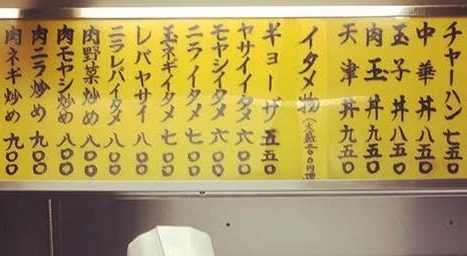 チャーハン 七五〇
中華丼 八五〇
玉子丼 八五〇
肉玉丼 九五〇
天津丼 九五〇
イタメ物(大盛二〇〇円増)
ギョーザ 五五〇
ヤサイイタメ 六〇〇
モヤシイタメ 六〇〇
ニライタメ 七〇〇
玉ネギイタメ 七〇〇
レバヤサイ 八〇〇
ニラレバイタメ 八〇〇
肉野菜炒め 八〇〇
肉モヤシ炒め 八〇〇
肉ニラ炒め 九〇〇
肉ネギ炒め 九〇〇